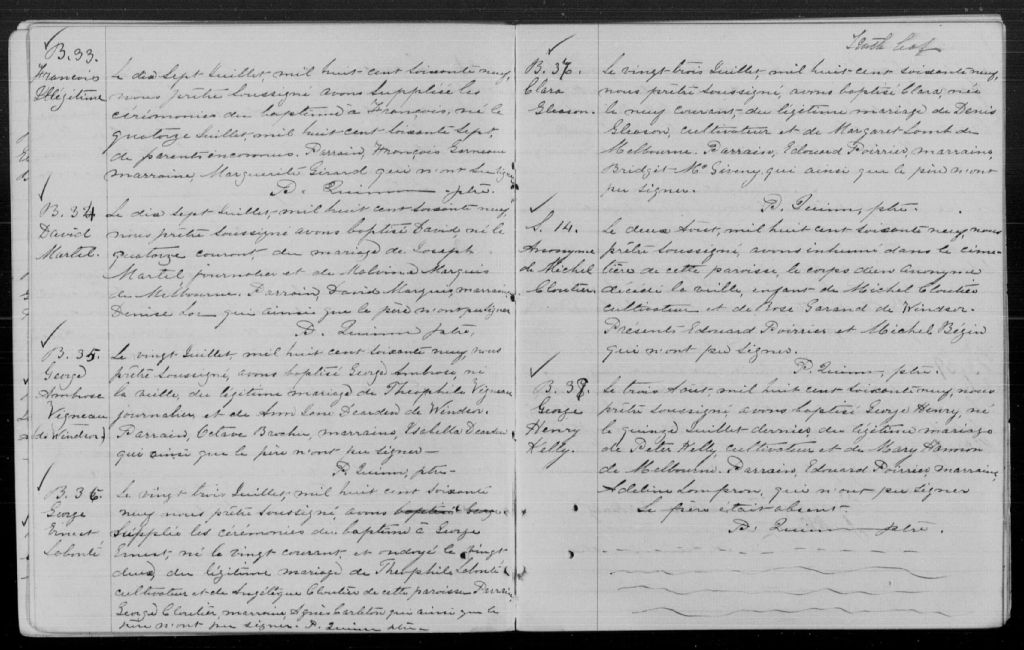 B. 33.
François
Illégitime
Le dix Sept Juillet, mil huit cent soixante neuf,
nous prêtre soussigné avons supplée les
cérémonies du baptême à François, né le
quatorze Juillet, mil huit cent soixante Sept,
de parents inconnus. Parrain, François Garneau
marraine, Marguerite Girard qui n'ont su signer
P. Quinn ptre.
B. 34
David
Martel.
Le dix Sept Juillet, mil huit cent soixante neuf,
nous prêtre soussigné avons baptisé David, né le
quatorze courant, du mariage de Joseph
Martel journalier et de Malvina Marquis
de Melbourne. Parrain, David Marquis, marraine
Denise qui ainsi que le père n'ont pu signer
P. Quinn ptre.
B. 35.
George
Ambrose
Vigneau
(de Windsor)
Le vingt Juillet, mil huit cent soixante neuf, nous
prêtre soussigné, avons baptisé George Ambrose, né
la veille, du légitime mariage de Théophile Vigneau
journalier et de Ann Jane Dearden de Windsor.
Parrain, Octave Brochu, marraine, Isabella Dearden
qui ainsi que le père n'ont pu signer
P. Quinn, ptre
B. 36.
George
Ernest
Labonté
Le vingt trois Juillet, mil huit cent soixante
neuf nous prêtre soussigné, avons baptisé George
suppléé les cérémonies du baptême à George
Ernest, né le vingt courant, et ondoyé le vingt
deux, du légitime mariage de Théophile Labonté
cultivateur et de Angélique Cloutier de cette paroisse. Parrain
George Cloutier marraine, Agnès Carleton qui ainsi que le
père n'ont pu signer. P. Quinn ptre
Tenth leaf
B. 37.
Clara
Gleason.
Le vingt trois Juillet, mil huit cent soixante neuf,
nous prêtre soussigné, avons baptisé Clara, née
le neuf courant, du légitime mariage de Denis
Gleason, cultivateur et de Margaret Lamb de
Melbourne. Parrain, Edouard Poirrier, marraine,
Bridget qui ainsi que le père n'ont
pu signer.
P. Quinn, ptre.
S. 14.
Anonyme
de Michel
Cloutier.
Le deux Aout, mil huit cent soixante neuf, nous
prêtre soussigné, avons inhumé dans le cime-
tière de cette paroisse, le corps d'un Anonyme
décédé la veille, enfant de Michel Cloutier
cultivateur et de Rose Garand de Windsor.
Présents Edouard Poirrier et Michel Bégin
qui n'ont pu signer.
P. Quinn, ptre.
B. 38.
George
Henry
Kelly.
Le trois Aout, mil huit cent soixante neuf, nous
prêtre soussigné avons baptisé George Henry, né
le quinze Juillet dernier, du légitime mariage
de Peter Kelly, cultivateur et de Mary Hannon
de Melbourne. Parrain, Edouard Poirrier, marraine,
Adeline Lampron, qui n'ont pu signer
Le père était absent.
P. Quinn ptre.